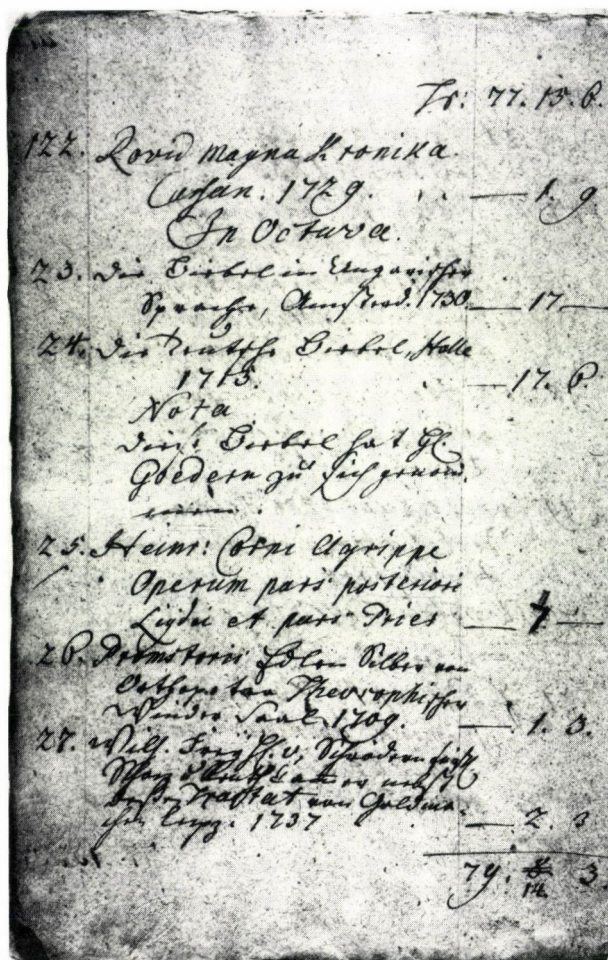 Tr: 77. 15. 6.
122. Rovid magna Kronika
Cassan. 1729. — 1. 9
In Octava.
23. Die Biebel in Ungarischer
Sprache, Amsterd. 1730. — 17 —
24. Die Teutsche Biebel, Halle
1713. — 17. 6
Nota
Diese Biebel hat H.
Goedern zu sich genom̄
men.
25. Heinr: Corni Agrippe
Operum pars posterior
et pars Pries — 4 —
26. Edlen Silber von
Theosophischer
Wunder Saal 1709. — 1. 3.
27. Wilh. v. Schrödern
nebst
Tractat von Goldma-
chen Leipz. 1737 — 2. 3
79. 14 3.